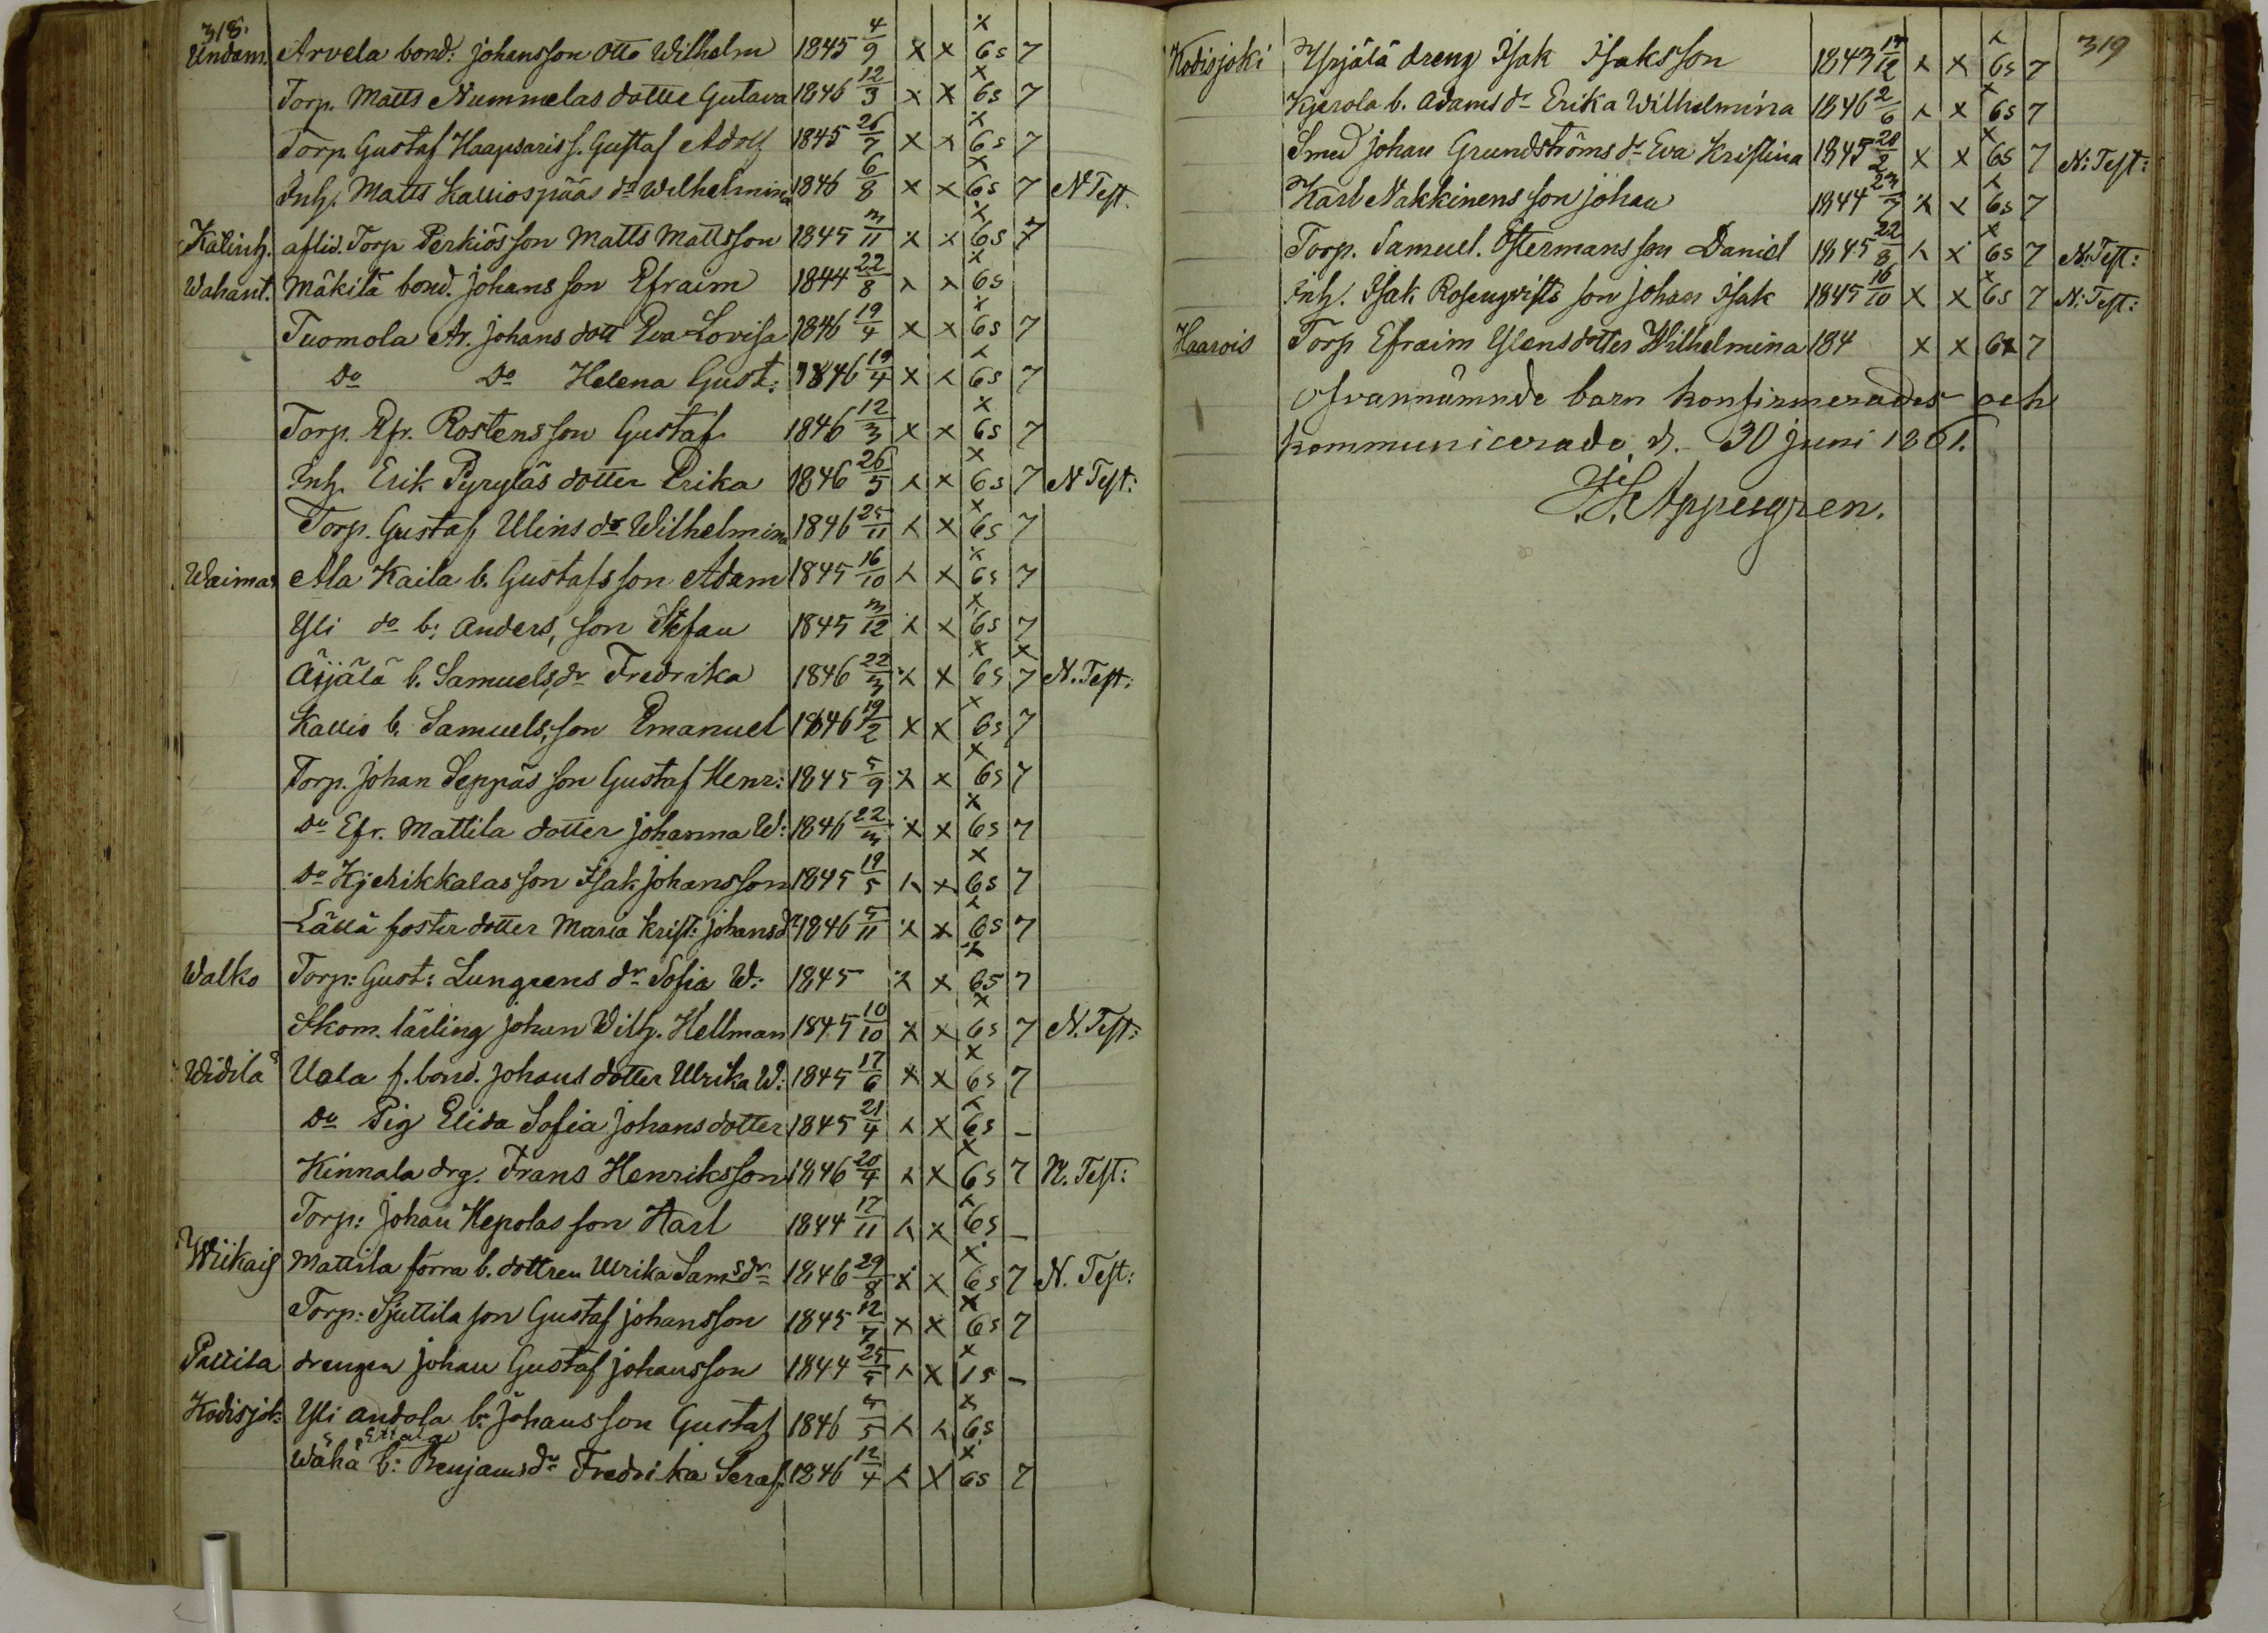 318.
Undam. Arvela bond: Johansson Otto Wilhelm 1845 4/9 x x 6s x 7
Torp. Matts Nummelas dotter Gustava 1846 12/3 x x 6s x 7
Torp. Gustaf Haapsaris s. Gustaf Adolf 1845 26/7 x x 6s x 7
Inh. Matts Kalliospääs dr Wilhelmina 1846 6/8 x x 6s x 7 N Test.
Kalinh. aflid. Torp Perkiös son Matts Mattsson 1845 3/11 x x 6s x 7
Wahant. Mäkilä bond. Johans son Efraim 1844 22/8 x x 6s x
Tuomola Ar. Johans dott Eva Lovisa 1846 19/4 x x 6s x 7
do do Helena Gust: 1846 19/4 x x 6s x 7
Torp. Efr. Rostens son Gustaf 1846 12/3 x x 6s x 7
Inh. Erik Pyryläs dotter Erika 1846 26/5 x x 6s x 7 N Test:
Torp. Gustaf Ulins dr Wilhelmina 1846 25/11 x x 6s x 7
Waimar Ala Kaila b. Gustafs son Adam 1845 16/10 x x 6s x 7
Yli do b: Anders, son Stefan 1845 3/12 x x 6s x 7
Äijälä b. Samuels, dr Fredrika 1846 22/3 x x 6s x 7 x N. Test:
Kallio b. Samuels, son Emanuel 1846 19/2 x x 6s x 7
Torp. Johan Seppäs son Gustaf Henr: 1845 5/9 x x 6s x 7
do Efr. Mattila dotter Johanna W: 1846 22/3 x x 6s x 7
do Kjerikkalas son Isak Johansson 1845 19/5 x x 6s x 7
Lällä foster dotter Maria Krist: Johansdr 1846 5/11 x x 6s x 7
Walko Torp: Gust: Lungrens dr Sofia W: 1845 x x 6s x 7
Skom. lärling Johan Wilh. Hellman 1845 10/10 x x 6s x 7 N. Test:
Widilä Uola f. bond. Johans dotter Ulrika W: 1845 17/6 x x 6s x 7
do Pig Elida Sofia Johansdotter 1845 21/4 x x 6s x –
Kinnala drg. Frans Henriksson 1846 20/4 x x 6s x 7 N. Test:
Torp: Johan Kepolas son Karl 1844 17/11 x x 6s x –
Wiikais Mattila förra b. dottren Ulrika Sams dr 1846 29/8 x x 6s x 7 N. Test:
Torp: Sjuttila son Gustaf Johansson 1845 12/7 x x 6s x 7
Pallila drengen Johan Gustaf Johansson 1844 25/5 x x 1s x –
Kodisjok: Yli Andola b: Johans son Gustaf 1846 5/5 x x 6s x
Wähä b: Benjams dr Fredrika Seraf. 1846 12/4 x x 6s x 7
319
Kodisjoki Yrjälä dreng Isak Isaksson 1843 17/12 x x 6s x 7
Kjerola b. Adams dr Erika Wilhelmina 1846 2/6 x x 6s x 7
Smed Johan Grundströms dr Eva Kristina 1845 20/2 x x 6s x 7 N: Test:
Karl Nakkinens son Johan 1844 23/7 x x 6s x 7
Torp. Samuel. Östermans son Daniel 1845 22/8 x x 6s x 7 N. Test:
Inh. Isak Rosenqvists son Johan Isak 1845 16/10 x x 6s x 7 N: Test:
Haarois Torp Efraim Ylens dotter Wilhelmina 184 x x 6x 7
Ofvannämnde barn konfirmerades och
kommunicerade d. 30 juni 1861.
Appelgren.